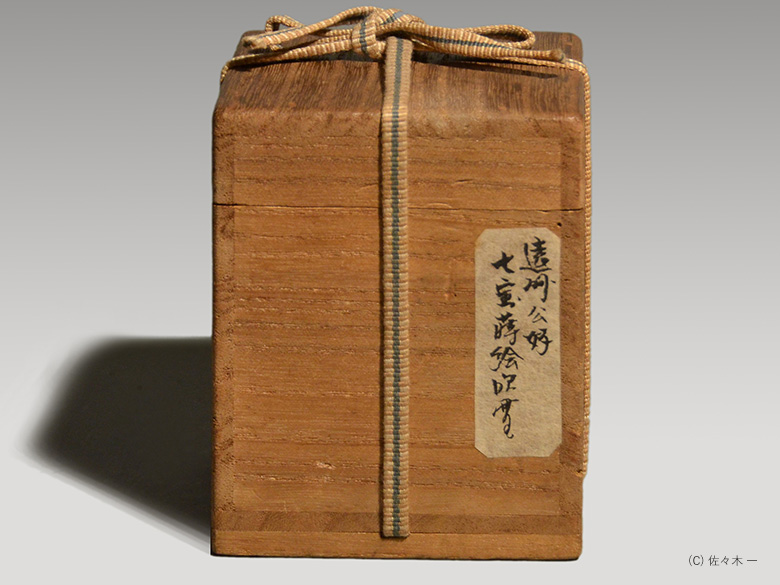 遠州公好
七宝蒔絵吹貫
(C) 佐々木 一